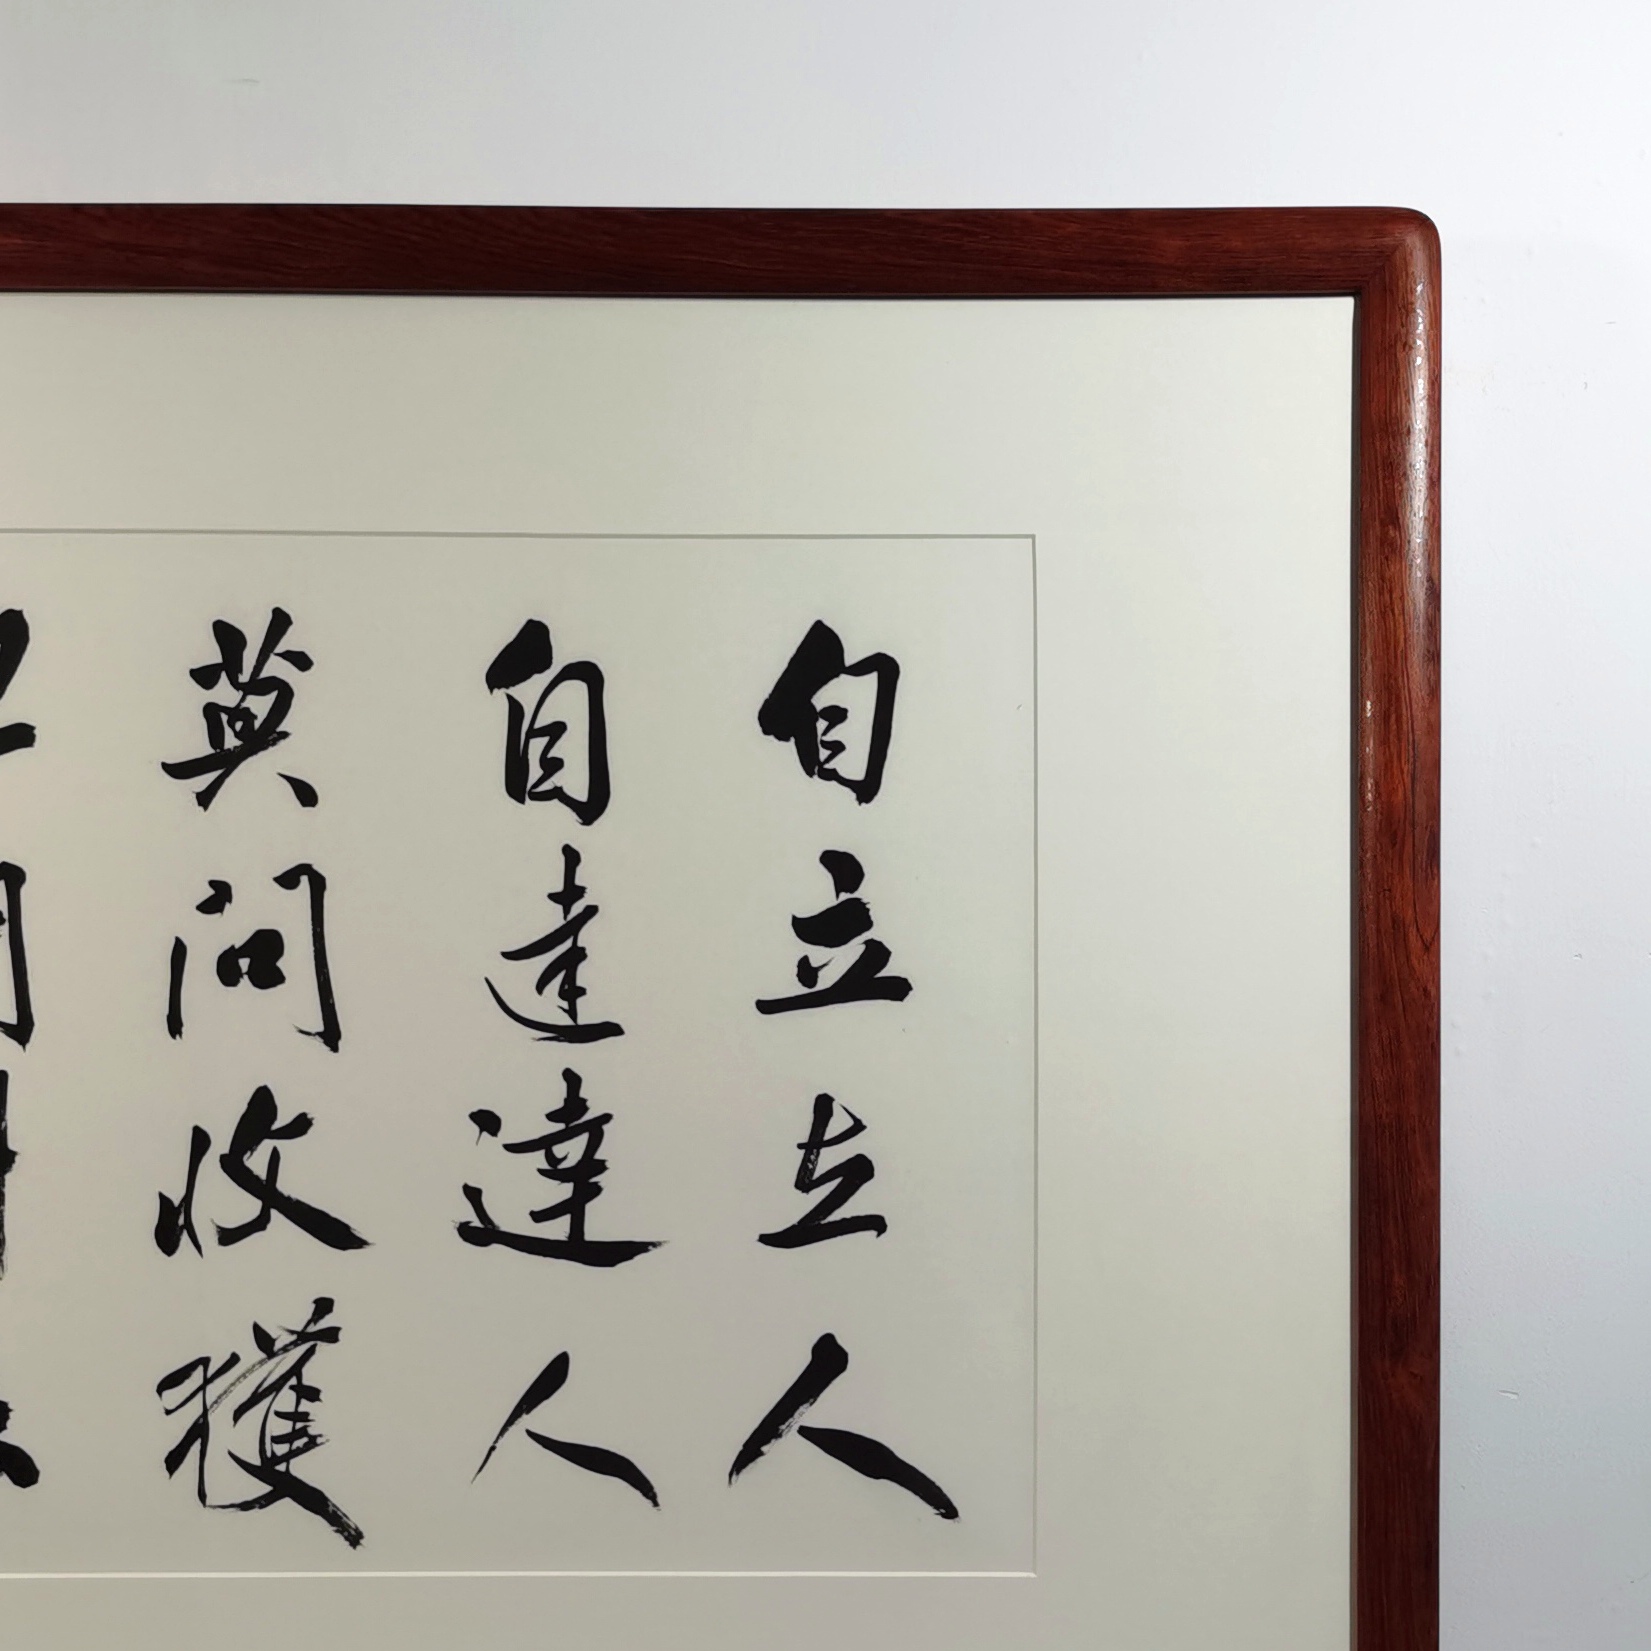 自立立人
自達達人
莫問收獲